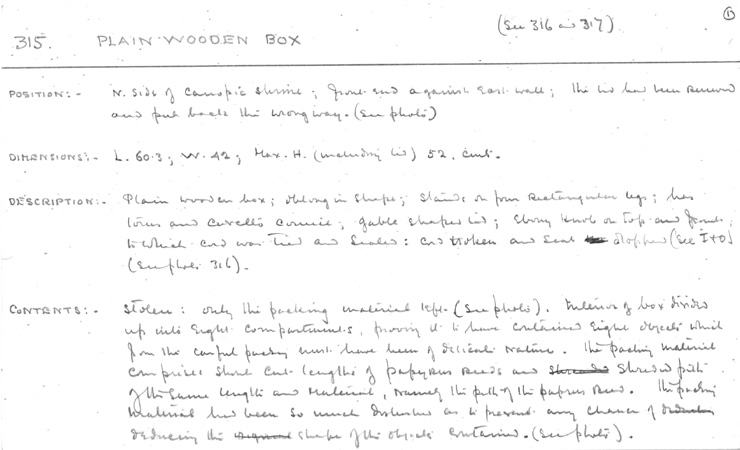 (See 316 and 317) 1
315. PLAIN WOODEN BOX
POSITION:- N. side of Canopic Shrine; front end against East wall; the lid had been removed
and put back the wrong way. (See photo)
DIMENSIONS:- L. 60.3; W. 42; Max. H. (including lid) 52. cent.
DESCRIPTION:- Plain wooden box; oblong in shape; stands on four rectangular legs; has
torus and cavetto cornice; gable shaped lid; ebony knob on top and front,
to which cord was tied and sealed: cord broken and seal dropped (See
(See photo 316).
CONTENTS:- Stolen: only the packing material left. (See photo). Interior of box divided
up into eight compartments, proving it to have contained eight objects which
from the careful packing must have been of delicate nature. The packing material
comprises short cut lengths of papyrus reeds and shredded pith
of the same length and material, namely the pith of the papyrus reed. The packing
material had been so much disturbed as to prevent any chance of
deducing the shape of the objects contained. (See photo).